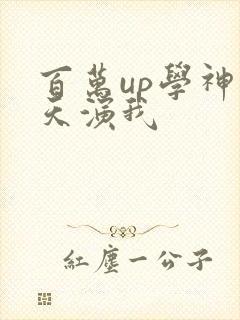 百萬up學神
天演我
紅塵一公子